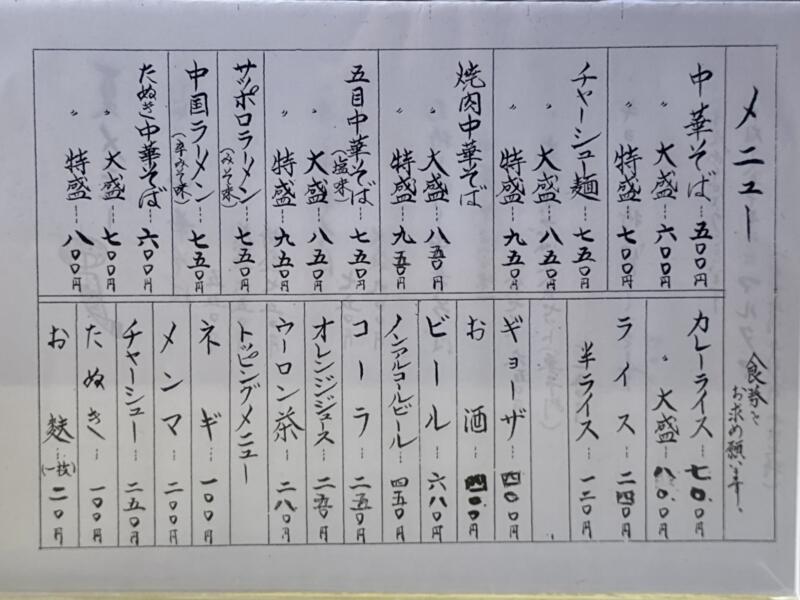 メニュー
食券を
お求め願います。
中華そば…五〇〇円
〃 大盛…六〇〇円
〃 特盛…七〇〇円
チャーシュー麺…七五〇円
〃 大盛…八五〇円
〃 特盛…九五〇円
焼肉中華そば
〃 大盛…八五〇円
〃 特盛…九五〇円
五目中華そば…七五〇円
(塩味)
〃 大盛…八五〇円
〃 特盛…九五〇円
サッポロラーメン…七五〇円
(みそ味)
中国ラーメン…七五〇円
(辛みそ味)
たぬき中華そば…六〇〇円
〃 大盛…七〇〇円
〃 特盛…八〇〇円
カレーライス…七〇〇円
〃 大盛…八〇〇円
ライス…二四〇円
半ライス…一二〇円
ギョーザ…四〇〇円
お酒…四〇〇円
ビール…六八〇円
ノンアルコールビール…四五〇円
コーラ…二五〇円
オレンジジュース…二五〇円
ウーロン茶…二八〇円
トッピングメニュー
ネギ…一〇〇円
メンマ…二〇〇円
チャーシュー…二五〇円
たぬき…一〇〇円
お麩…(一枚)二〇円